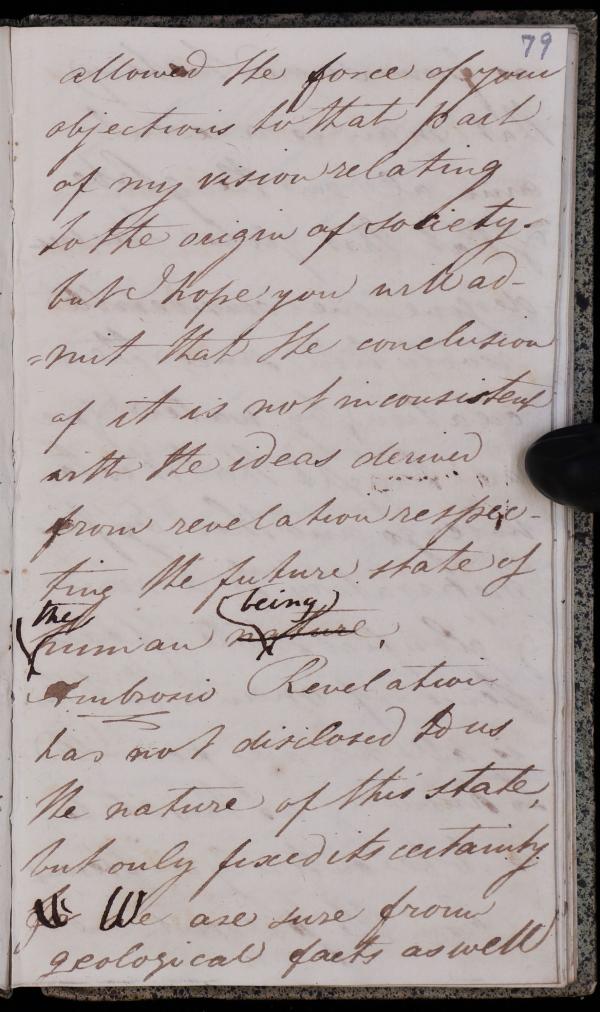 79
allowed the force of your
objections to that part
of my vision relating
to the origin of society.
but I hope you will ad-
=mit that the conclusion
of it is not inconsistent
with the ideas derived
from revelation respec-
ting the future state of
the being
human nature.
Ambrosio Revelation
has not disclosed to us
the nature of this state,
but only fixed its certainty
We are sure from
geological facts as well